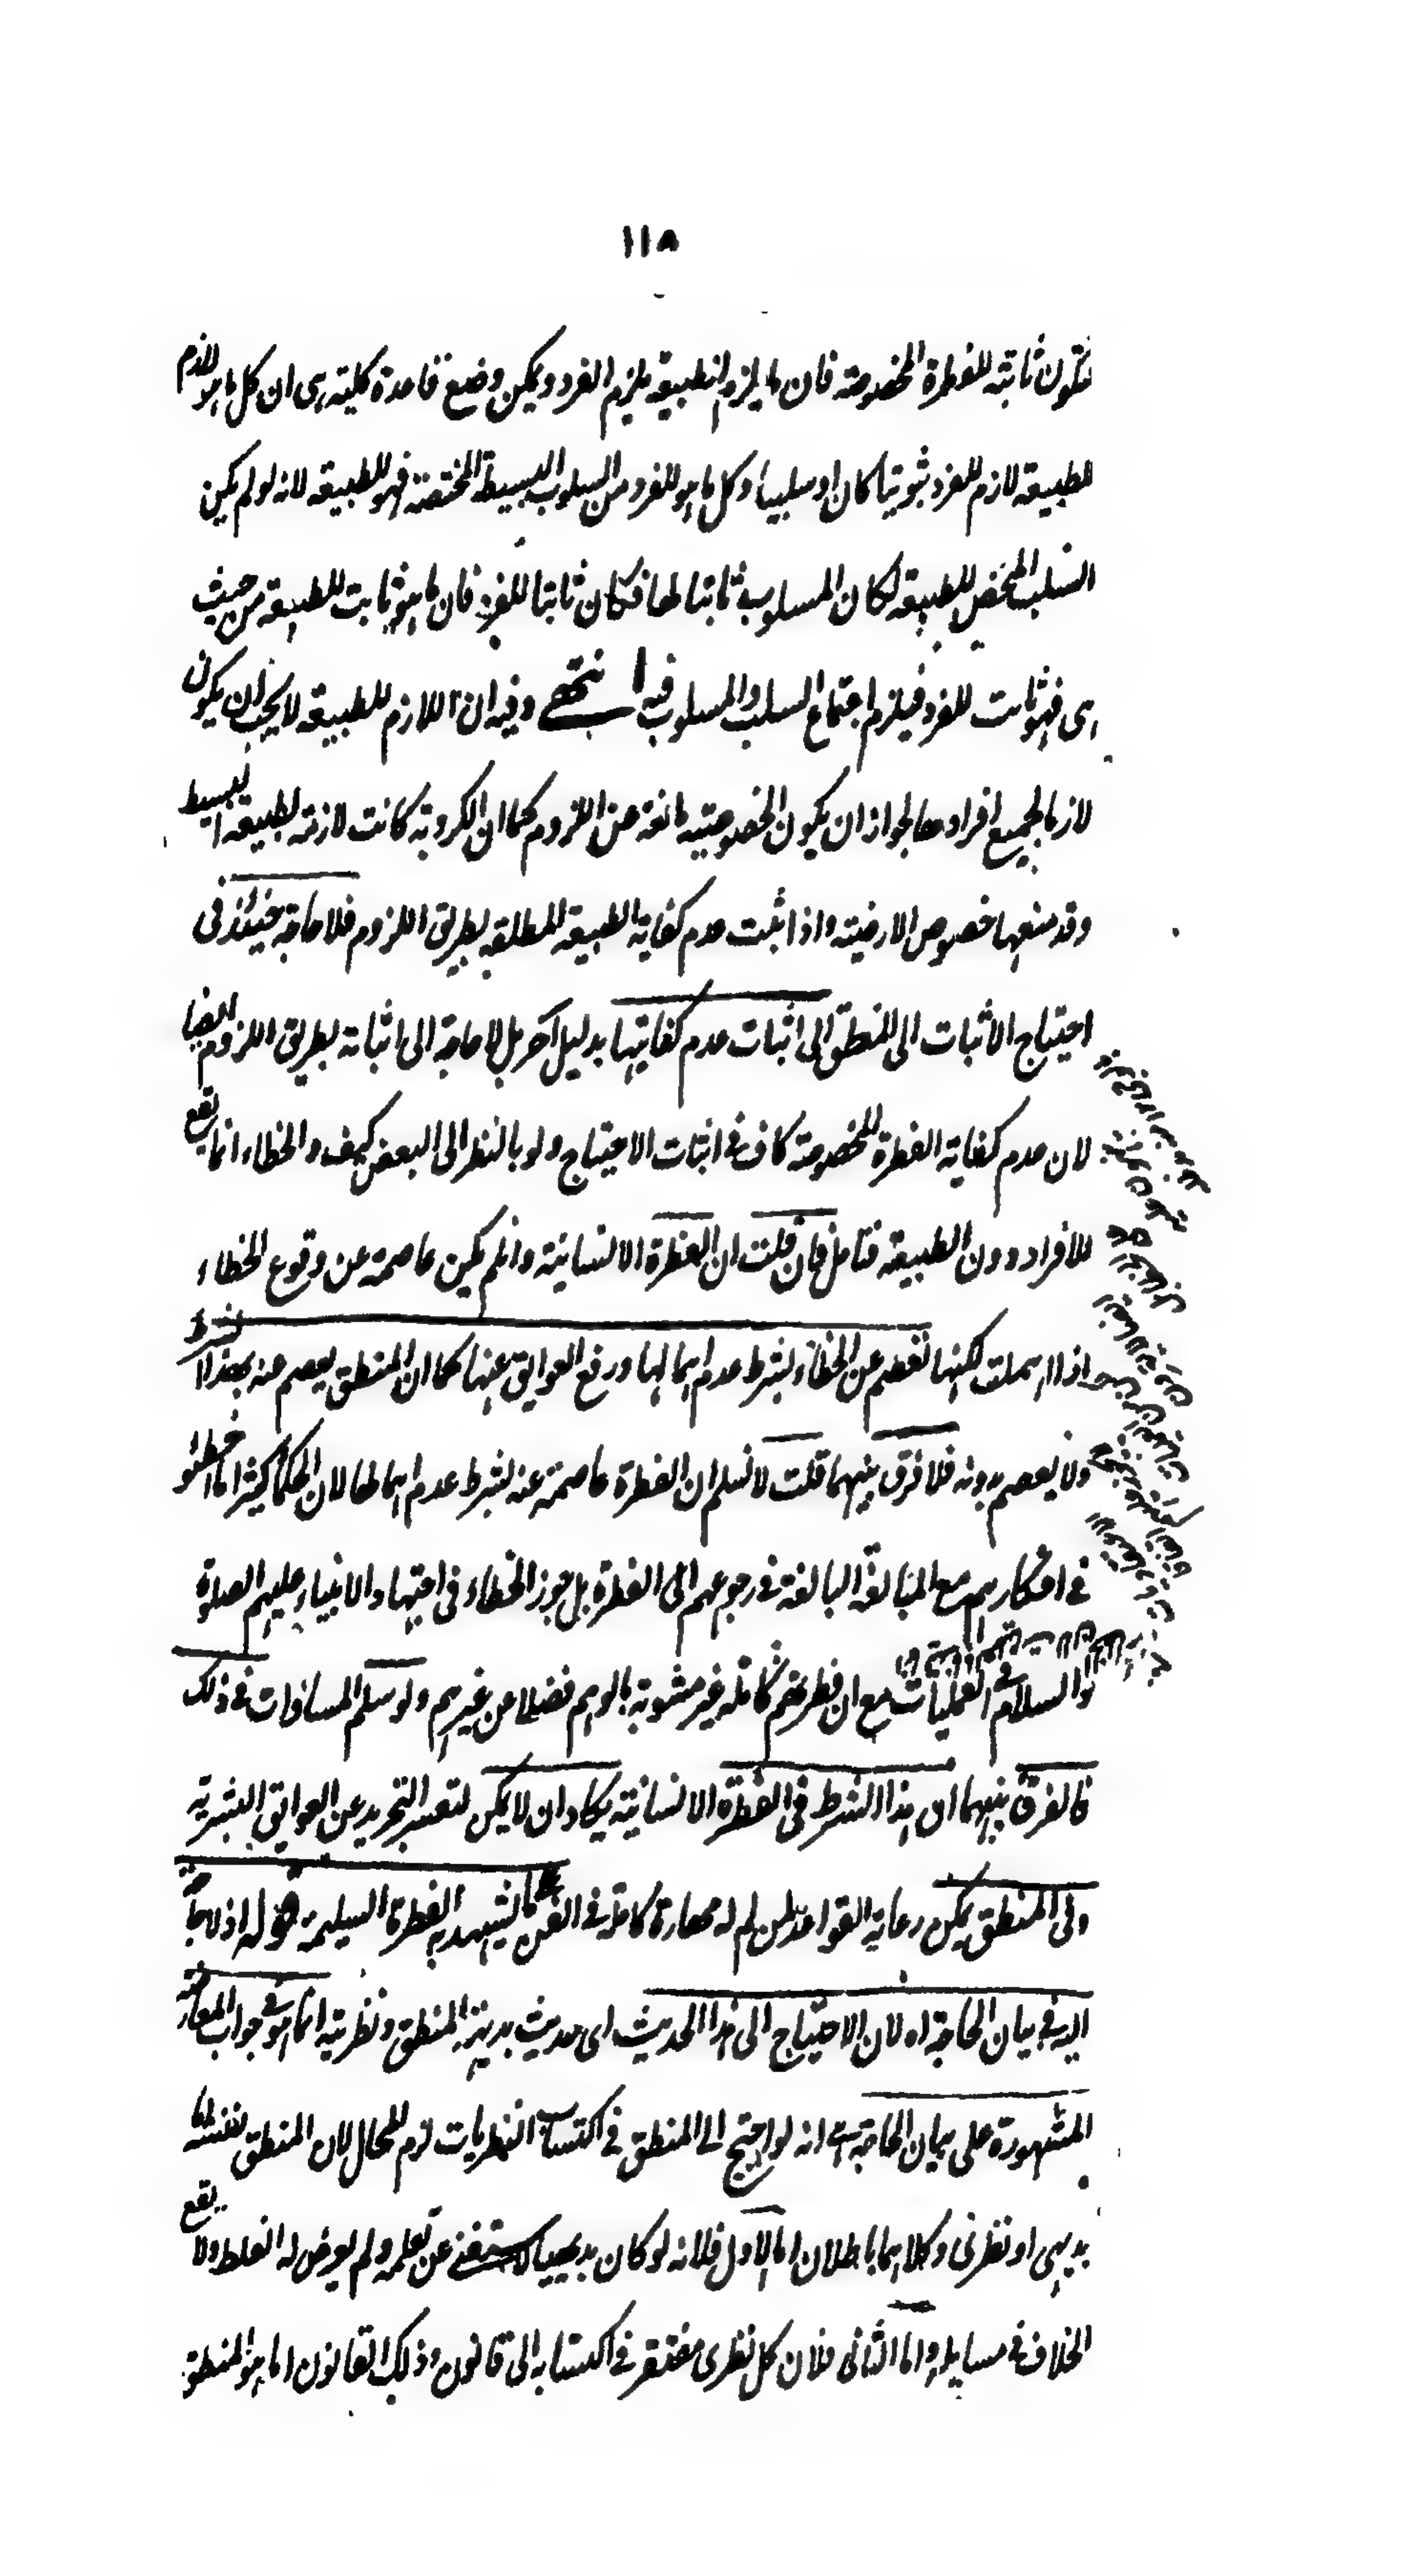 ١١٨
فتكون ثابتة للفطرة المخصوصة فان ما يلزم الطبيعة يلزم الفرد ويمكن وضع قاعدة كلية هى ان كل ما هو لازم
للطبيعة لازم للفرد ثبوتيا كان او سلبيا وكل ما هو للفرد من السلوب البسيطة المختصة فهو للطبيعة لانه لو لم يكن
السلب المخض للطبيعة لكان المسلوب ثابتا لها فكان ثابتا للفرد فان ما هو ثابت للطبيعة من حيث
هى فهو ثابت للفرد فيلزم اجتماع السلب والمسلوب فيه انتهے وفيه ان اللازم للطبيعة لا يجب ان يكون
لازما لجميع افرادها لجواز ان يكون الخصوصية مانعة من اللزوم كما ان الكروية كانت لازمة لطبيعة البسيط
وقد منعها خصوص الارضية واذا ثبت عدم كفاية الطبيعة المطلقة بطريق اللزوم فلا حاجة حينئذ فى
احتياج الاثبات الى المنطق الى اثبات عدم كفايتها بدليل آخر بل لا حاجة الى اثباته بطريق اللزوم ايضا
لان عدم كفاية الفطرة المخصوصة كاف فى اثبات الاحتياج ولو بالنظر الى البعض كيف والخطاء انما يقع
للافراد دون الطبيعة فتامل فان قلت ان الفطرة الانسانية وان لم يكن عاصمة عن وقوع الخطاء
اذا اهملت لكنها تعصم عن الخطاء بشرط عدم اهمالها ورفع العوايق عنها كما ان المنطق يعصم عنه بهذا الشرط
ولا يعصم بدونه فلا فرق بينهما قلت لا نسلم ان الفطرة عاصمة عنه بشرط عدم اهمالها لان الحكما كثيرا ما اخطئو
فى افكارهم مع المبالغة البالغة فى رجوعهم الى الفطرة بل جوز الخطاء فى اجتهاد الانبياء عليهم الصلوة
والسلام فى العمليات مع ان فطرتهم كاملة غير مشوبة بالوهم فضلا من غيرهم ولو سلم المساوات فى ذلك
فالفرق بينهما ان هذا الشرط فى الفطرة الانسانية يكاد ان لا يمكن لتعسر التجريد عن العوايق البشرية
وفى المنطق يمكن رعاية القواعد لمن له مهارة كاملة فى الفن كما يشهد به الفطرة السليمة قوله اذ لا حاجة
اليه فى بيان الحاجة اه لان الاحتياج الى هذا الحديث اى حديث بديهة المنطق ونظريته انما هو فى جواب المعارضة
المشهورة على بيان الحاجة انه لو احتيج الى المنطق فى اكتساب النظريات لزم المحال لان المنطق بنفسه اما
بديهى او نظرى وكلاهما باطلان اما الاول فلانه لو كان بديهيا لاستغنى عن تعلمه ولم يعرض له الغلط ولا يقع
الخلاف فى مسايله واما الثانى فلان كل نظرى مفتقر فى اكتسابه الى قانون وذلك القانون اما هو المنطق